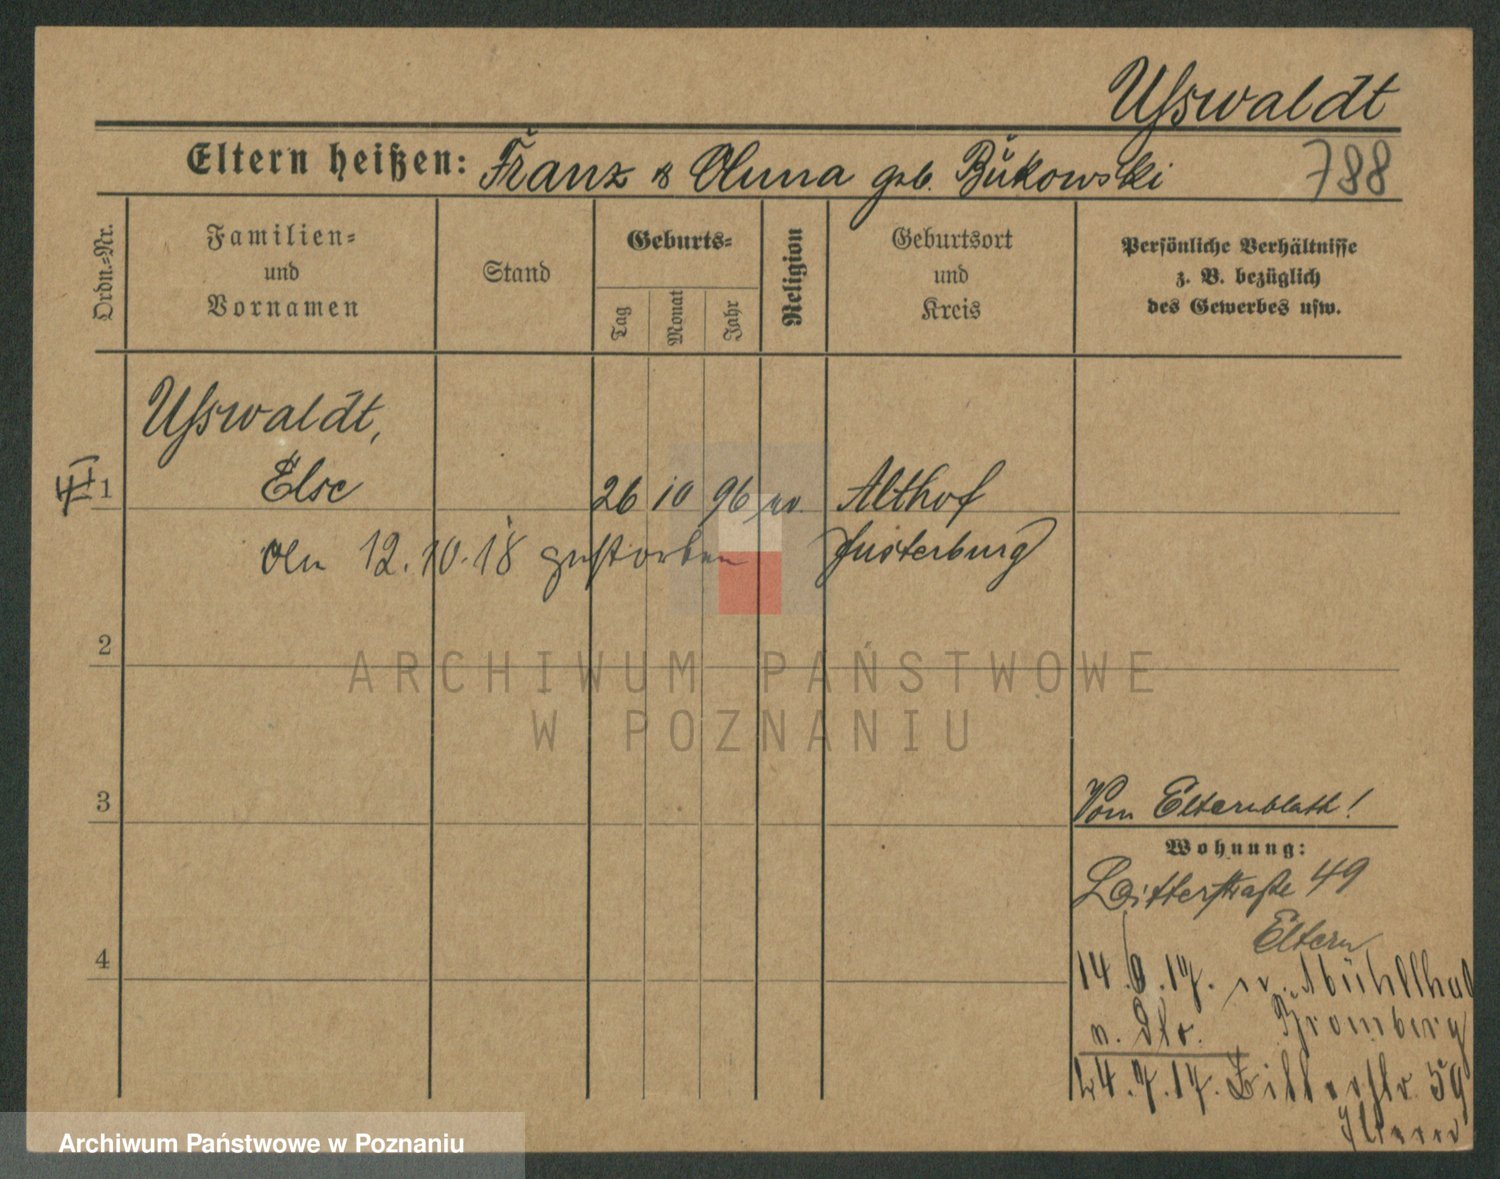 Uſswaldt
Eltern heißen: Franz & Anna geb. Bukowski
788
Ordn.-Nr.
Familien-
und
Vornamen
Stand
Geburts-
Tag
Monat
Jahr
Religion
Geburtsort
und
Kreis
Persönliche Verhältnisse
z. B. bezüglich
des Gewerbes usw.
Uſswaldt,
1 Else 26 10 96 ev. Althof
am 12.10.18 gestorben Insterburg
2
ARCHIWUM PAŃSTWOWE
W POZNANIU
3
Vom Elternblatt!
Wohnung:
Bitterstraße 49
Eltern
4
14.6.17.
Bromberg
24.7.17. Bitterstr. 59
Eltern
Archiwum Państwowe w Poznaniu